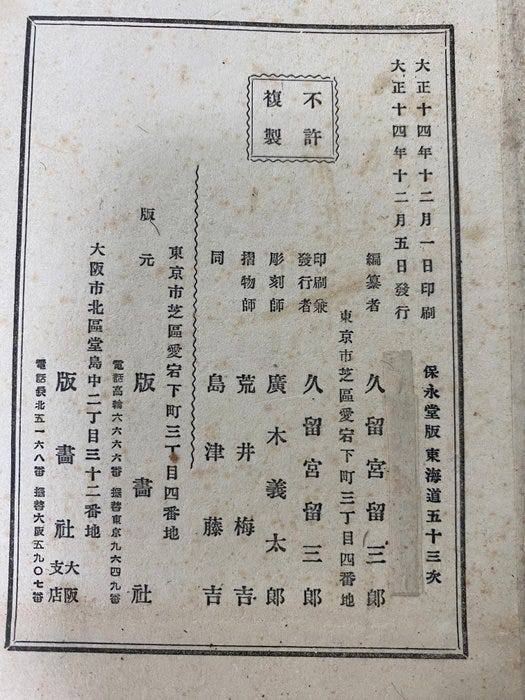 大正十四年十二月一日印刷
大正十四年十二月五日發行
保永堂版 東海道五十三次
不許
複製
編纂者 久留宮留三郎
東京市芝區愛宕下町三丁目四番地
印刷兼
發行者 久留宮留三郎
彫刻師 廣木義太郎
摺物師 荒井梅吉
同 島津藤吉
東京市芝區愛宕下町三丁目四番地
版元 版畫社
電話高輪六六六六番 振替東京九六四九番
大阪市北區堂島中二丁目三十二番地
版畫社 大阪
支店
電話長北五一六八番 振替大阪五九〇七番